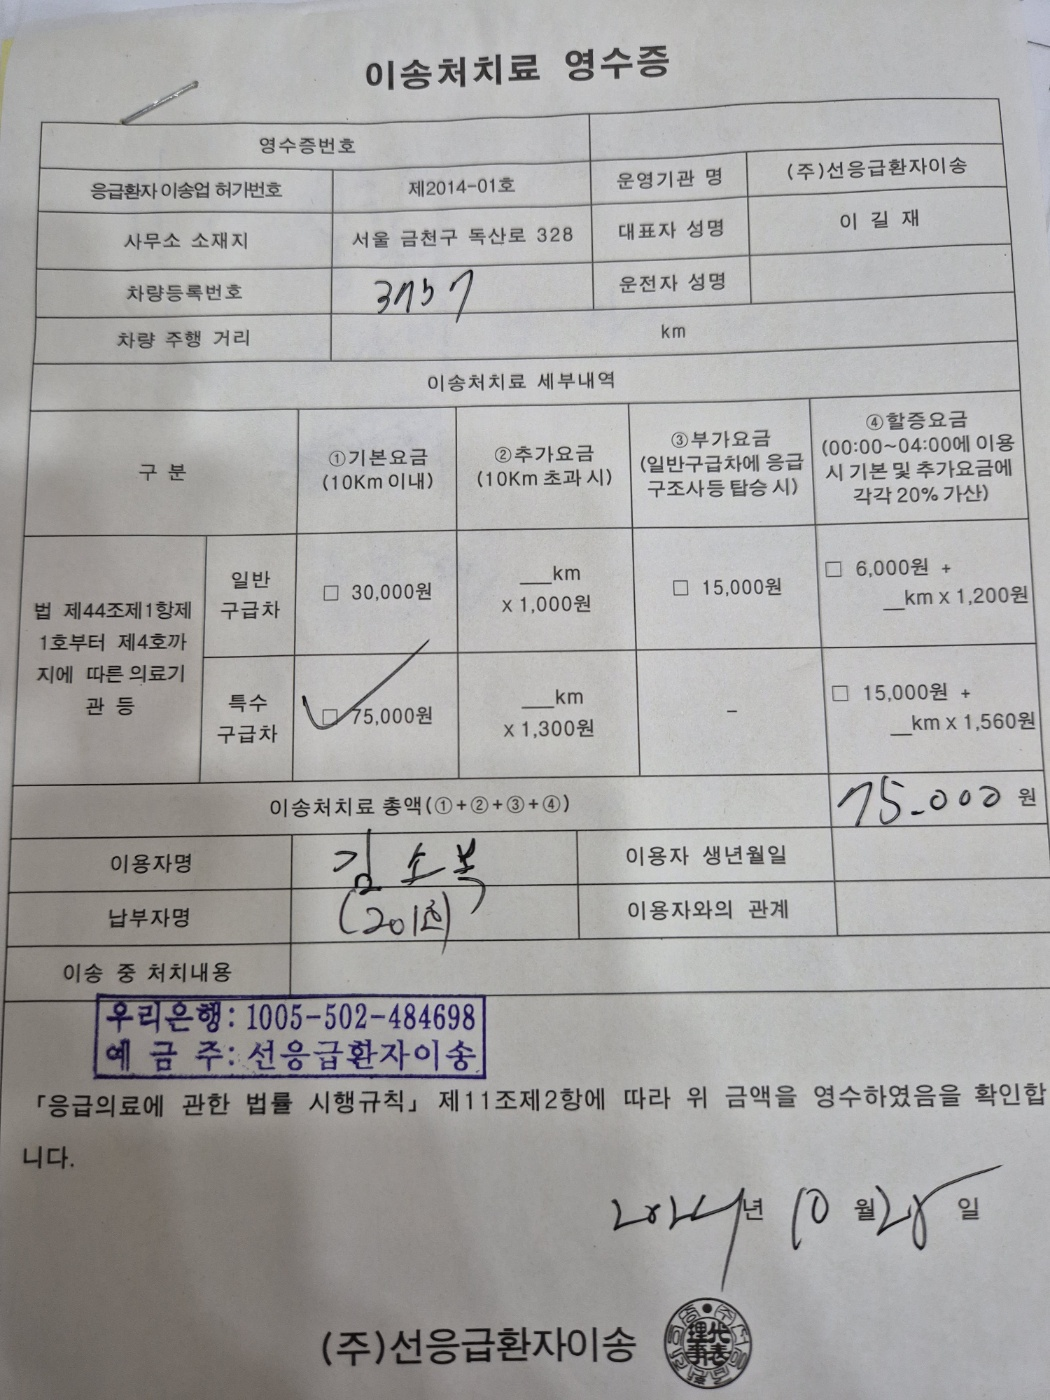 이송처치료 영수증
영수증번호
응급환자 이송업 허가번호 제2014-01호 운영기관 명 (주)선응급환자이송
사무소 소재지 서울 금천구 독산로 328 대표자 성명 이 길 재
차량등록번호 3757 운전자 성명
차량 주행 거리 km
이송처치료 세부내역
구 분
①기본요금
(10Km 이내)
②추가요금
(10Km 초과 시)
③부가요금
(일반구급차에 응급
구조사등 탑승 시)
④할증요금
(00:00~04:00에 이용
시 기본 및 추가요금에
각각 20% 가산)
법 제44조제1항제
1호부터 제4호까
지에 따른 의료기
관 등
일반
구급차
□ 30,000원
__km
x 1,000원
□ 15,000원
□ 6,000원 +
__km x 1,200원
특수
구급차
□ 75,000원
__km
x 1,300원
-
□ 15,000원 +
__km x 1,560원
이송처치료 총액(①+②+③+④) 75-000 원
이용자명 김소복 이용자 생년월일
납부자명 이용자와의 관계
이송 중 처치내용
우리은행: 1005-502-484698
예 금 주: 선응급환자이송
「응급의료에 관한 법률 시행규칙」 제11조제2항에 따라 위 금액을 영수하였음을 확인합
니다.
2024년 10월 28일
(주)선응급환자이송